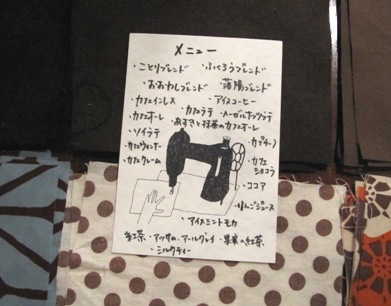 メニュー
・ことりブレンド ・ふくろうブレンド
・おおわしブレンド ・蕗陽ブレンド
・カフェインレス ・アイスコーヒー
・カフェオーレ ・カフェラテ
・あずきと抹茶のカフェオーレ
・ソイラテ ・カプチーノ
・カフェクレーム ・カフェショコラ
・ココア
・りんごジュース
・アイスミントモカ
紅茶・アッサム・アールグレイ・果実の紅茶
・ミルクティー